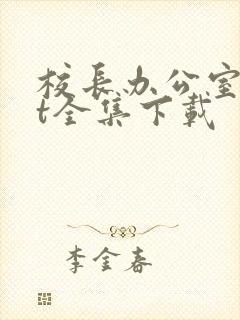 校长办公室
t全集下载
李金春